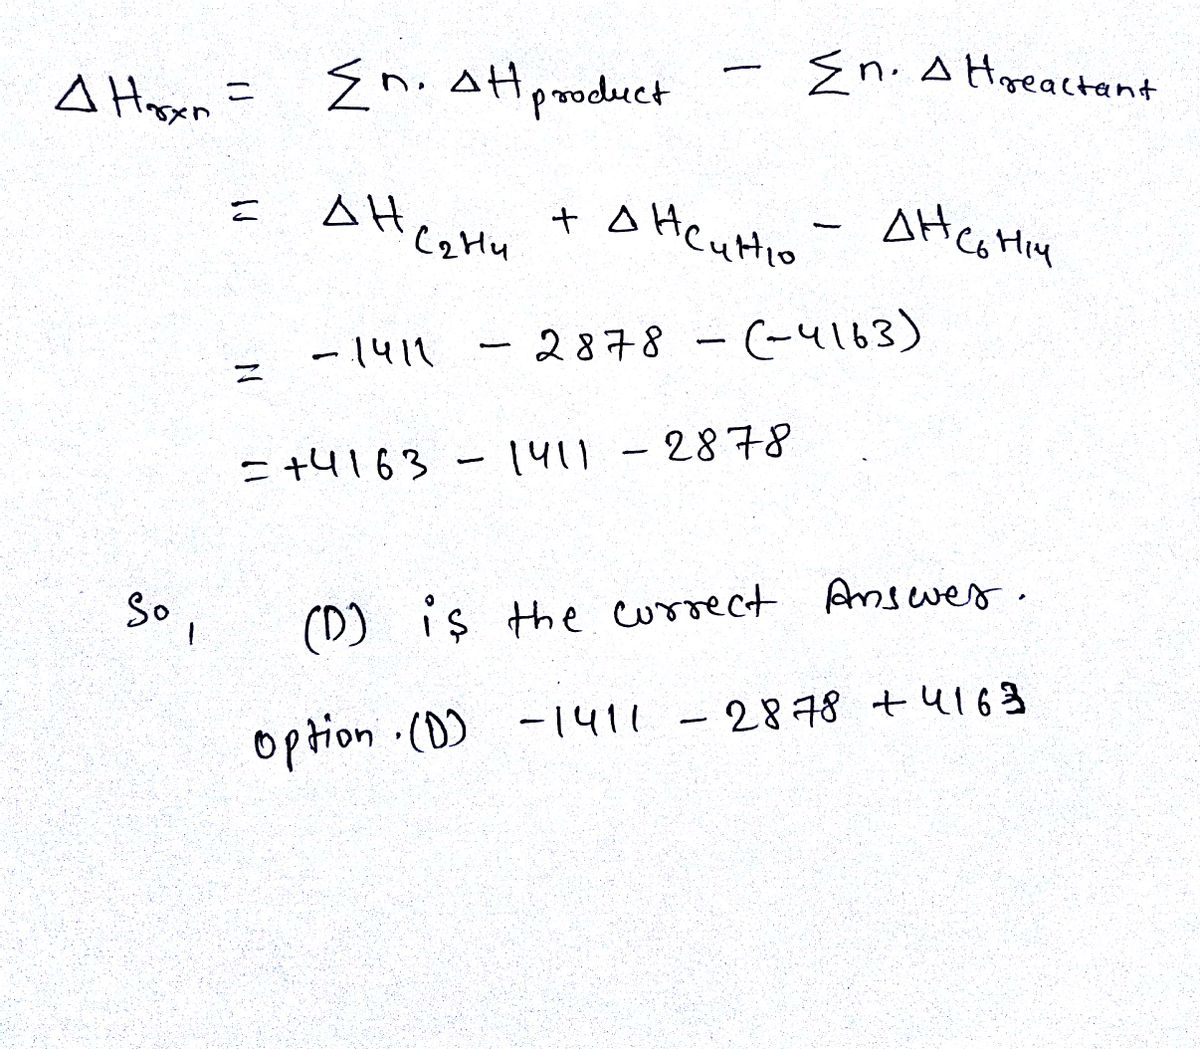 ΔHrxn = Σn. ΔHproduct − Σn. ΔHreactant
= ΔHC2H4 + ΔHC4H10 − ΔHC6H14
= −1411 − 2878 − (−4163)
= +4163 − 1411 − 2878
So, (D) is the correct Answer.
option.(D) −1411 − 2878 + 4163